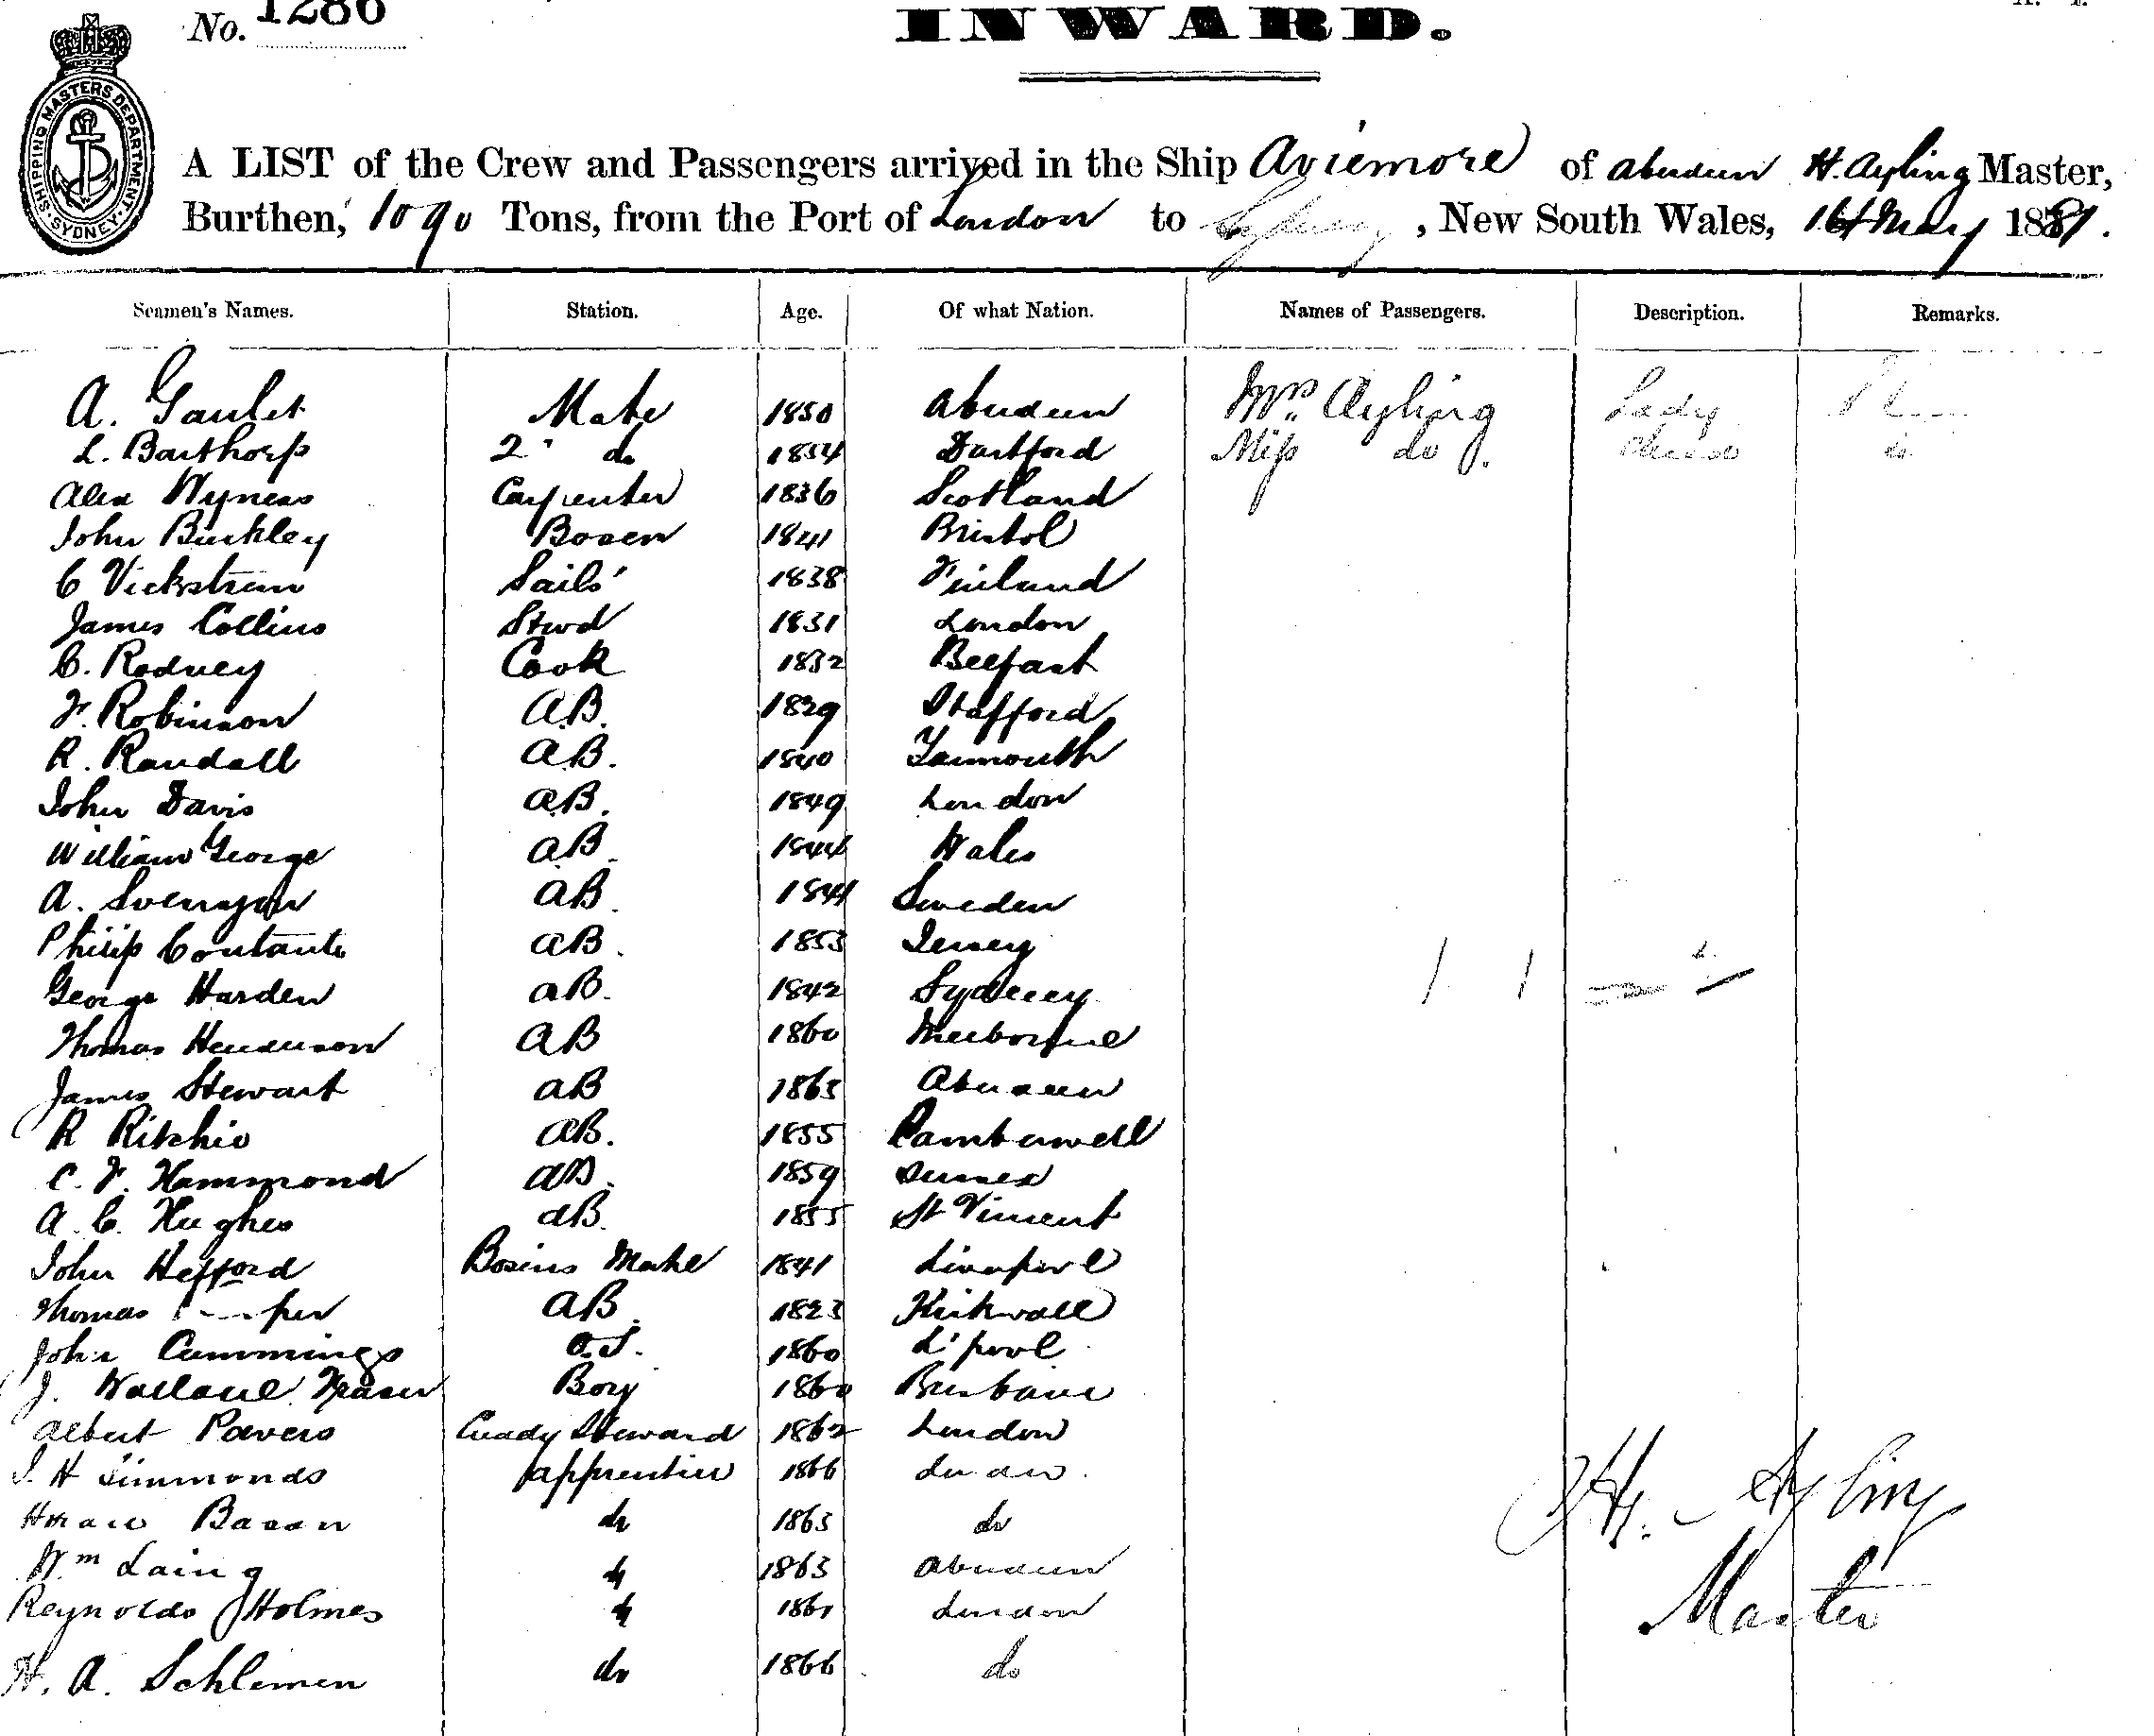 No. 1286
INWARD.
SHIPPING MASTERS DEPARTMENT SYDNEY
A LIST of the Crew and Passengers arrived in the Ship Aviemore of Aberdeen H. Ayling Master,
Burthen, 1090 Tons, from the Port of London to Sydney, New South Wales, 16th May 1881.
Seamen's Names. Station. Age. Of what Nation. Names of Passengers. Description. Remarks.
A. Gaulet Mate 1850 Aberdeen Mrs. Ayling Lady
L. Barthorp 2 do 1854 Dartford Miss do
Alex Wyness Carpenter 1836 Scotland
John Buckley Bosen 1841 Bristol
C Vickstrem Sails 1838 Finland
James Collins Stwd 1831 London
C. Rodney Cook 1832 Belfast
F. Robinson A.B. 1829 Stafford
R. Randall A.B. 1840 Yarmouth
John Davis A.B. 1849 London
William George A.B. 1844 Wales
A. AB. 1841 Sweden
Philip Coutanche AB. 1853 Jersey
George Harden AB. 1842 Sydney
Thomas Henderson AB 1860 Melborne
James Stewart AB 1863 Aberdeen
R Ritchie AB. 1855 Camberwell
C. F. Hammond AB. 1859 Sussex
A. C. Hughes AB. 1855 St Vincent
John Hefford Bosins Mate 1841 Liverpool
Thomas AB. 1823 Kirkwall
John Cummings O.S. 1860 L'pool
J. Wallace Fraser Boy 1860 Brisbane
Albert Powers Cuddy Steward 1862 London
J. H Simmonds apprentice 1866 London
Horace Bacon do 1863 do
Wm Laing do 1863 Aberdeen
Reynolds Holmes do 1861 London
H. A. Schlemen do 1866 do
H. Ayling
Master